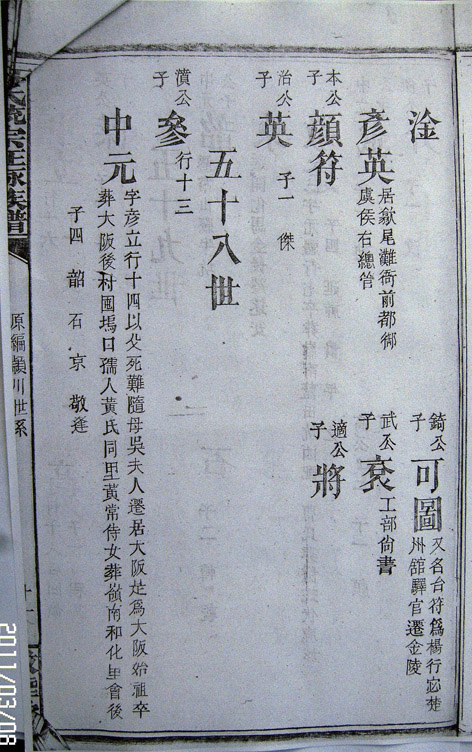 淦
錡公子 可圖 又名台符爲楊行宓楚
州館驛官遷金陵
彥英 居歙尾灘衙前都御
虞侯右總管
武公子 袞 工部尚書
本公子 顔符
適公子 將
治公子 英 子一 傑
五十八世
濆公子 參 行十三
中元 字彥立行十四以父死難隨母吳夫人遷居大阪是爲大阪始祖卒
葬大阪後村國塢口孺人黃氏同里黃常侍女葬嶺南和化里會後
子四 韶 石 京 敬逢
原編潁川世系
2011/03/08